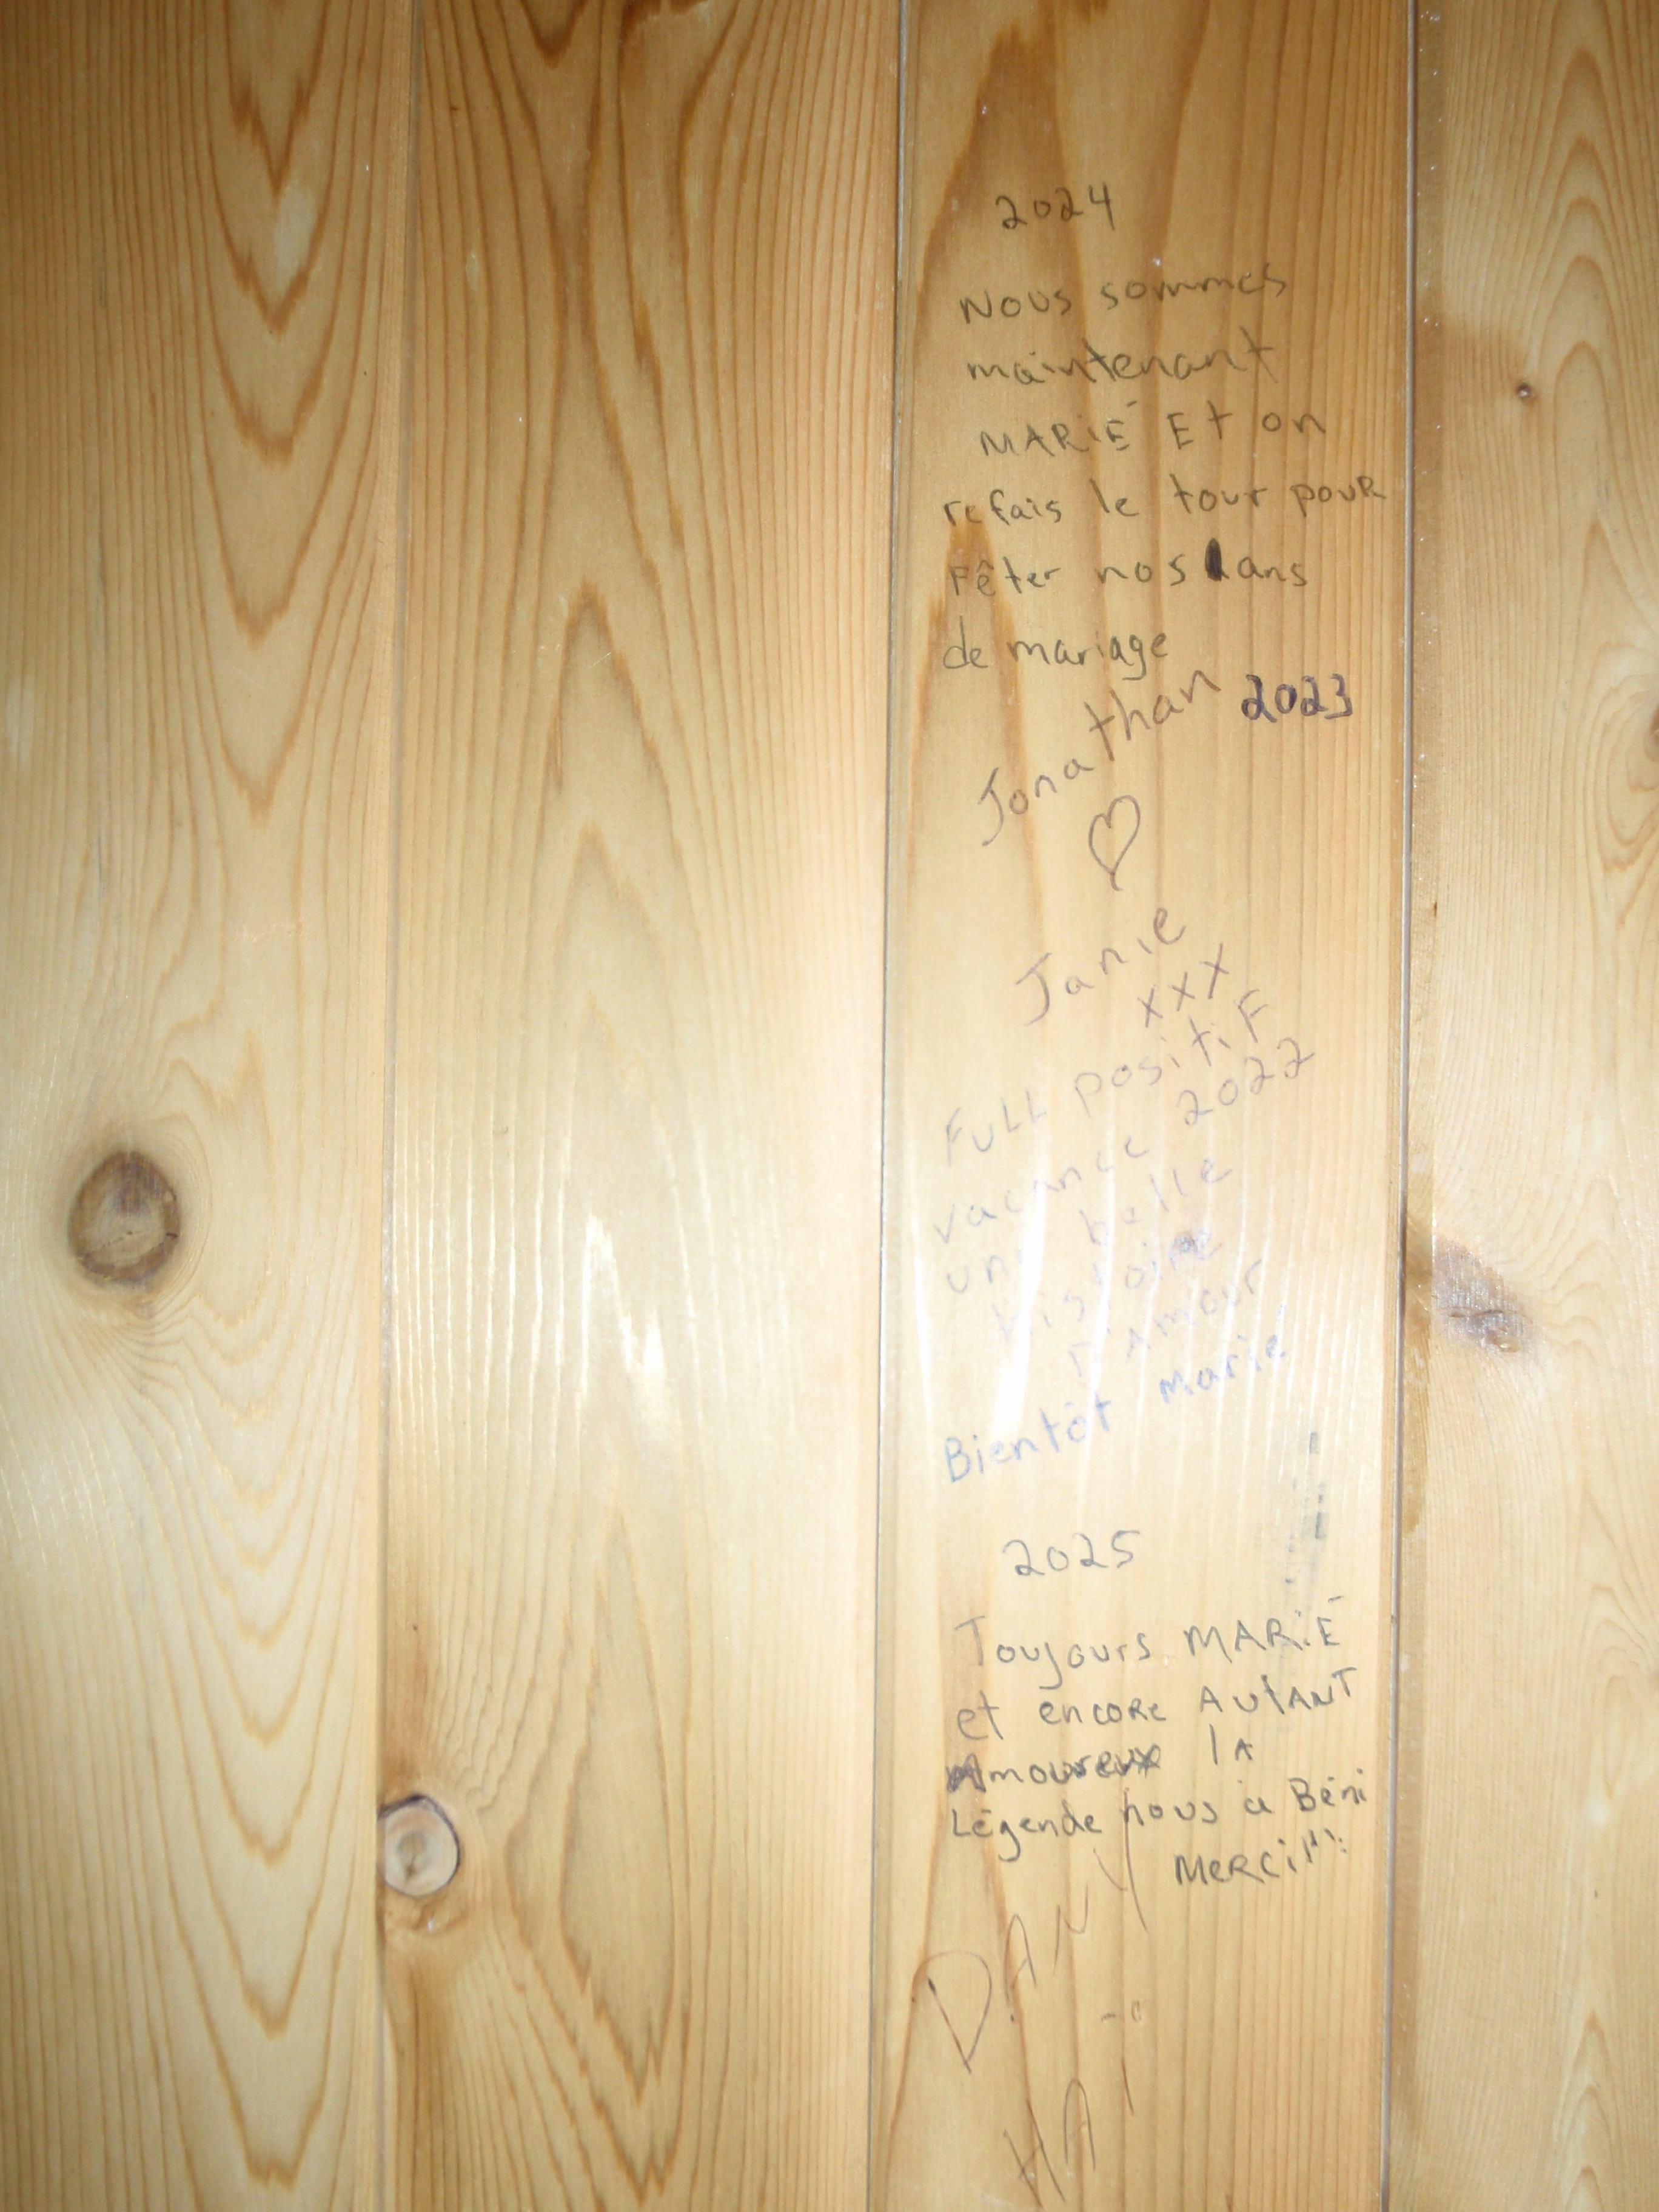 2024
Nous sommes
maintenant
MARIÉ Et on
refais le tour pouR
Fêter nos 1 ans
de mariage
Jonathan 2023
♡
Janie
xxx
FULL positiF
vacance 2022
une belle
histoire
D'Amour
Bientôt Marié
2025
Toujours MARIÉ
et encore AutANT
Amoureux lA
Légende nous a Béni
MeRCi!!!
DANY